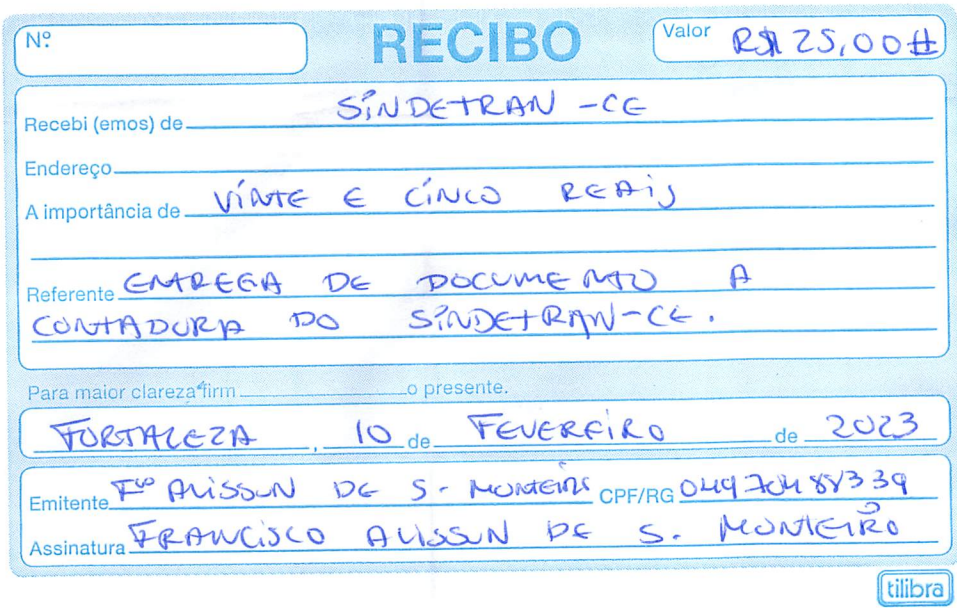 Nº RECIBO Valor R$ 25,00#
Recebi (emos) de SINDETRAN-CE
Endereço
A importância de VINTE E CINCO REAIS
Referente ENTREGA DE DOCUMENTO A
CONTADORA DO SINDETRAN-CE.
Para maior clareza firm o presente.
FORTALEZA, 10 de FEVEREIRO de 2023
Emitente Fco ALISSON DE S. MONTEIRO CPF/RG 04970488339
Assinatura FRANCISCO ALISSON DE S. MONTEIRO
tilibra